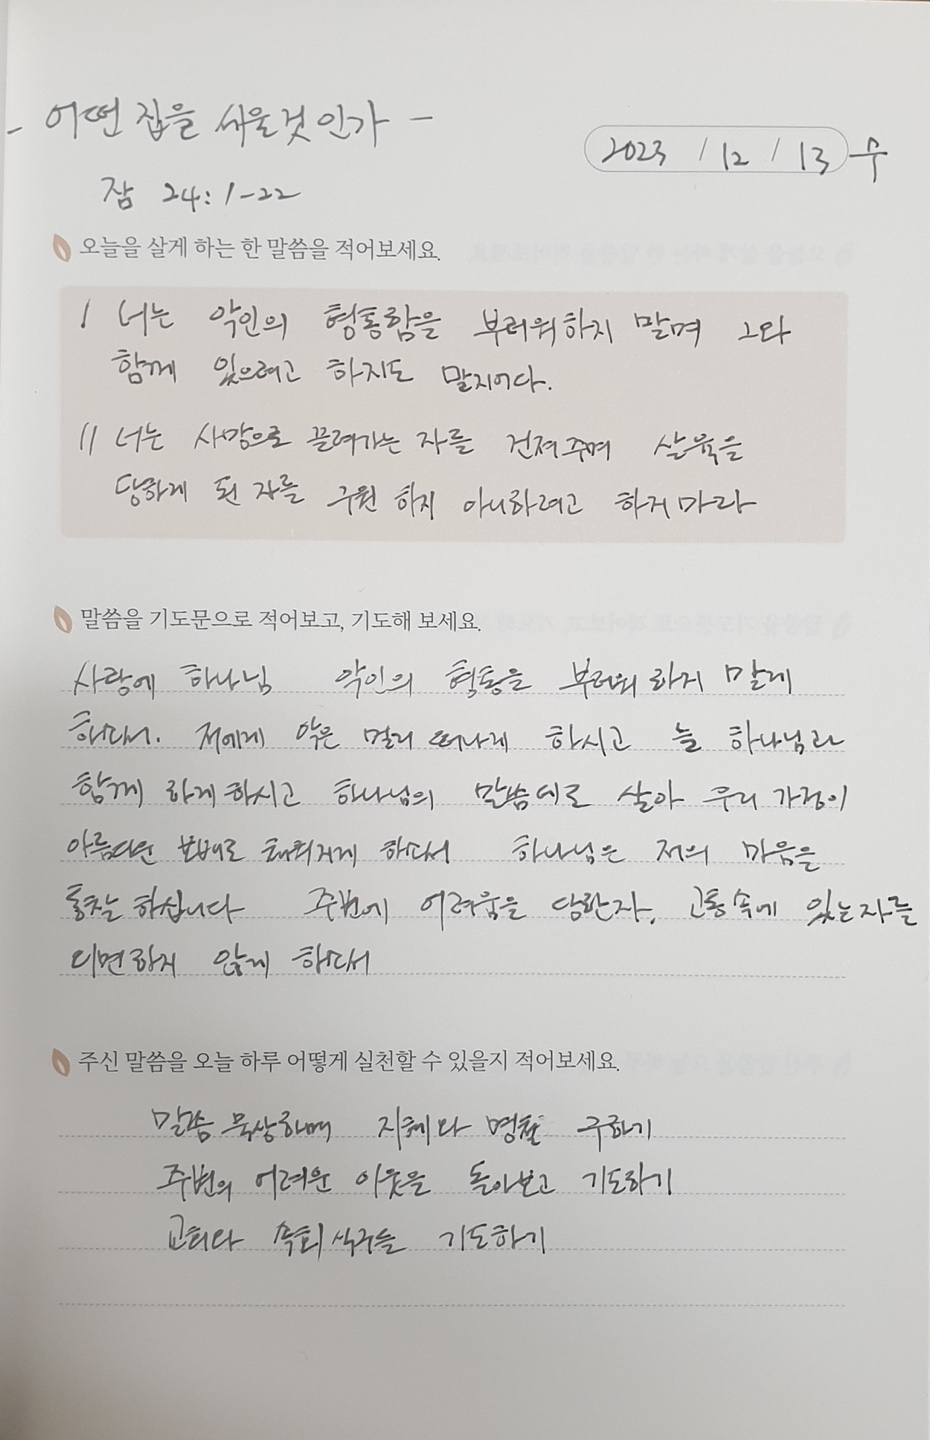 - 어떤 집을 세울것인가 -
2023 / 12 / 13 수
잠 24:1-22
오늘을 살게 하는 한 말씀을 적어보세요.
1 너는 악인의 형통함을 부러워하지 말며 그와
함께 있으려고 하지도 말지어다.
11 너는 사망으로 끌려가는 자를 건져주며 살륙을
당하게 된 자를 구원 하지 아니하려고 하지 마라
말씀을 기도문으로 적어보고, 기도해 보세요.
사랑에 하나님 악인의 형통을 부러워 하지 말게
하소서. 저에게 악은 멀리 떠나게 하시고 늘 하나님과
함께 하게 하시고 하나님의 말씀데로 살아 우리 가정이
아름다운 보배로 채워지게 하소서 하나님은 저의 마음을
통찰 하십니다 주변에 어려움을 당한자, 고통속에 있는자를
외면하지 않게 하소서
주신 말씀을 오늘 하루 어떻게 실천할 수 있을지 적어보세요.
말씀 묵상하며 지혜와 명철 구하기
주변의 어려운 이웃을 돌아보고 기도하기
교회와 속회식구들 기도하기